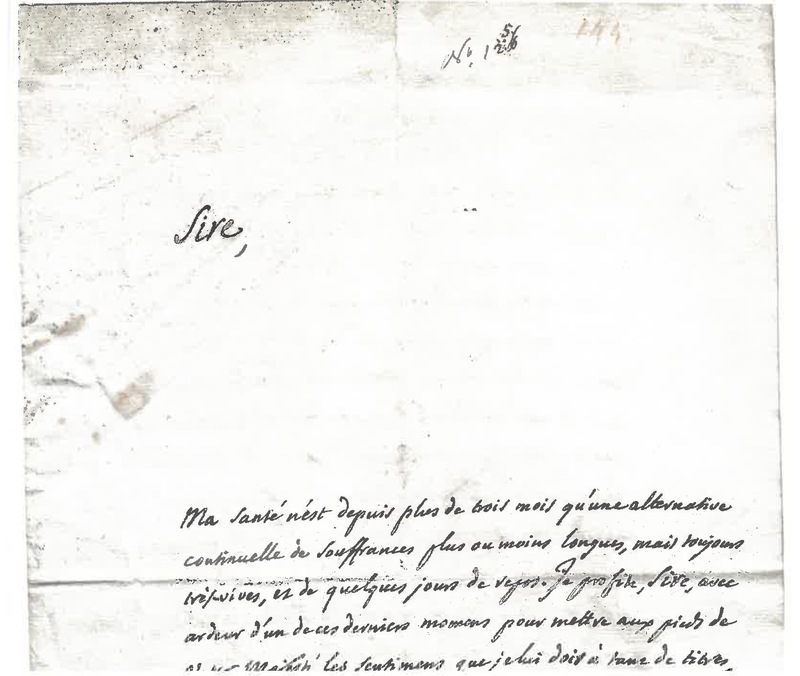 144.
Sire,
Ma santé n'est depuis plus de trois mois qu'une alternative
continuelle de souffrances plus ou moins longues, mais toujours
très-vives, et de quelques jours de repos. Je profite, Sire, avec
ardeur d'un de ces derniers momens pour mettre aux pieds de
Majesté les sentimens que je lui dois à tant de titres,